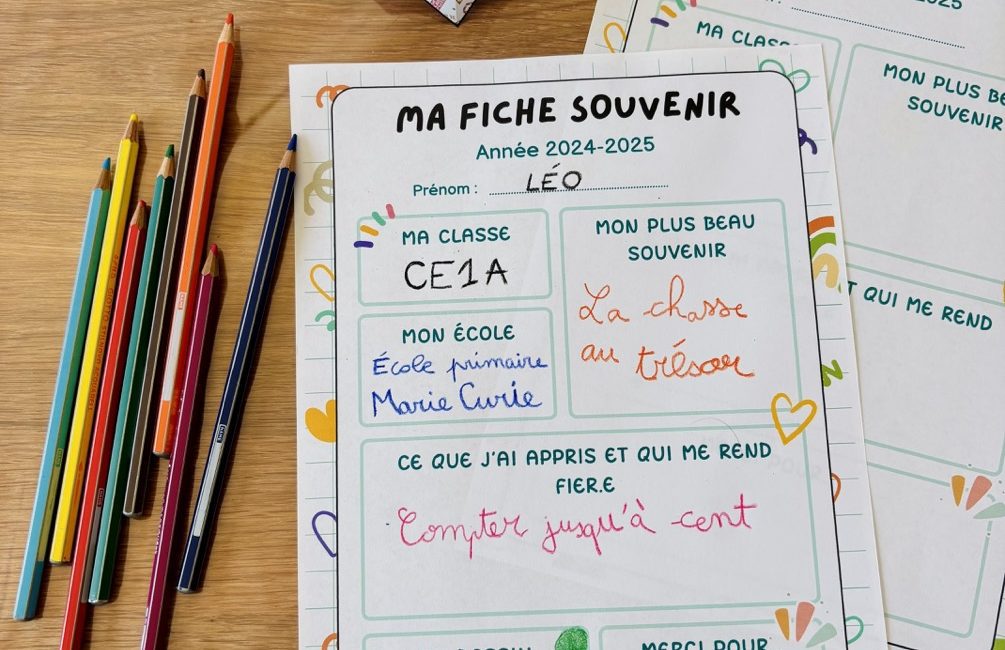 MA FICHE SOUVENIR
Année 2024-2025
Prénom : LÉO
MA CLASSE
CE1A
MON ÉCOLE
École primaire
Marie Curie
MON PLUS BEAU
SOUVENIR
La chasse
au trésor
CE QUE J'AI APPRIS ET QUI ME REND
FIER.E
Compter jusqu'à cent
MERCI POUR
MA CLASSE
MON PLUS
SOUVENIR
QUI ME REND